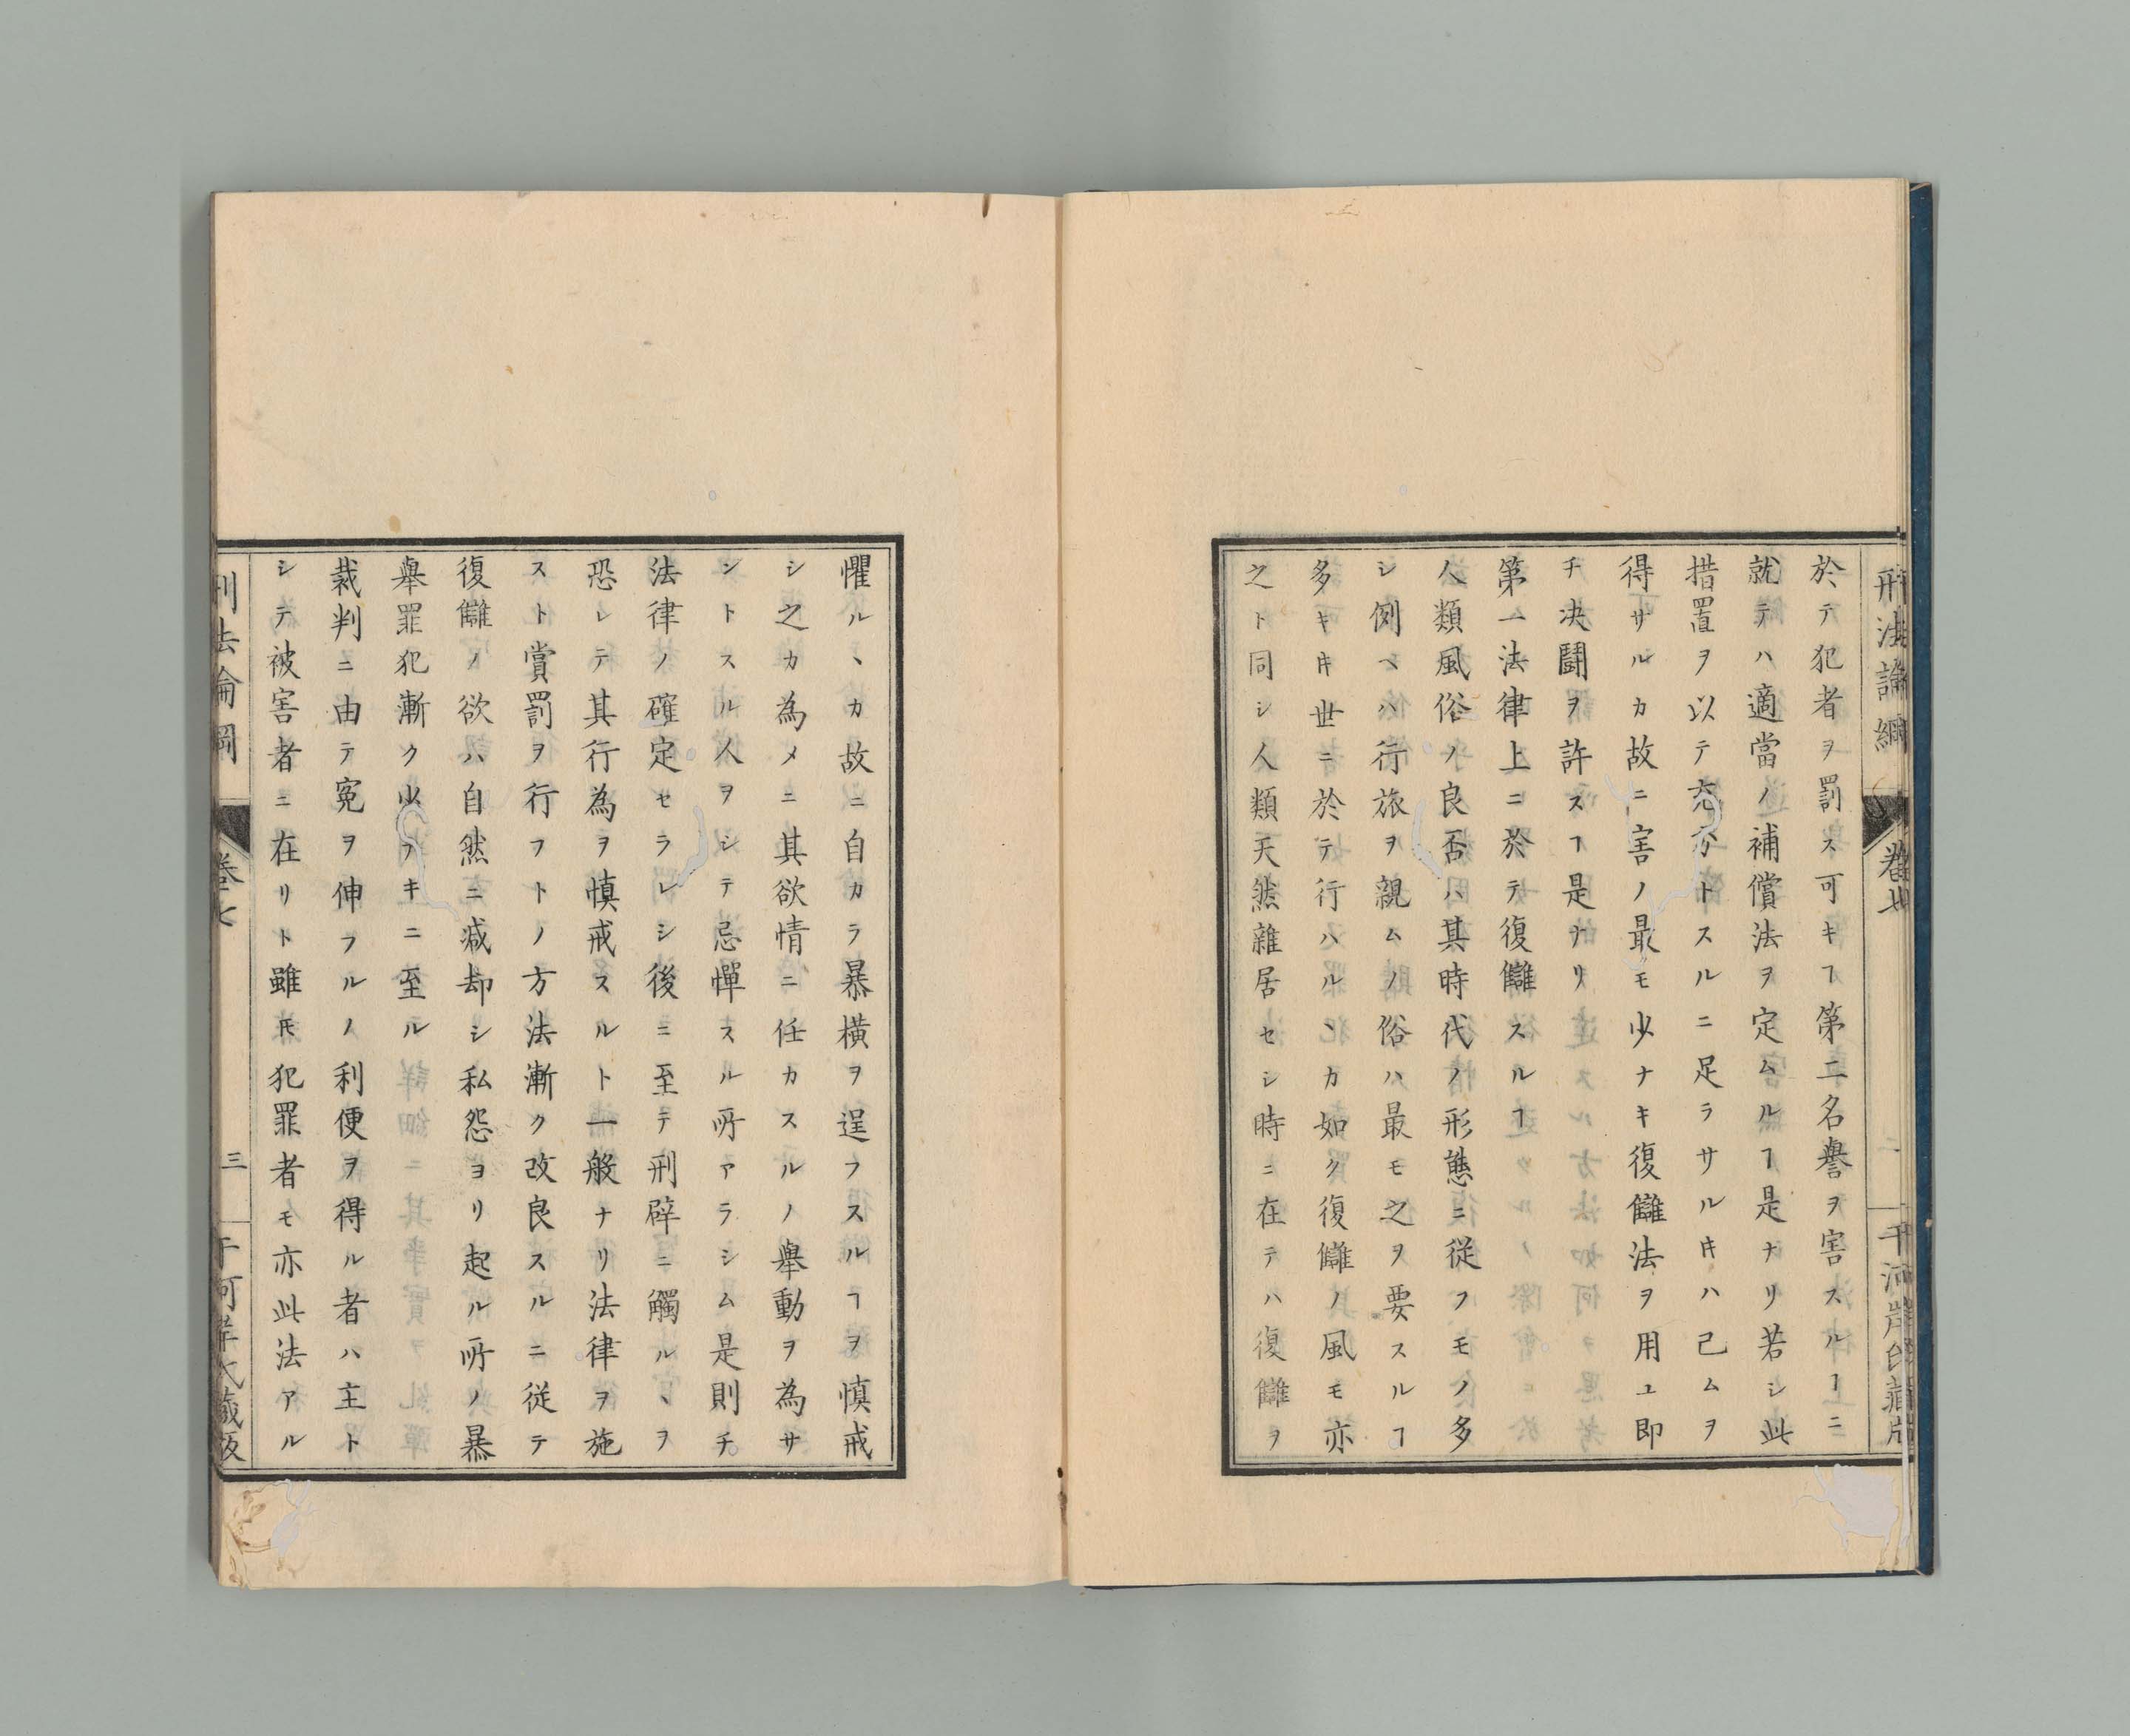 刑法論綱
卷七
二
千河岸氏藏版
於テ犯者ヲ罰ス可キヿ第二名譽ヲ害スルヿニ
就テハ適當ノ補償法ヲ定ムルヿ是ナリ若シ此
措置ヲ以テ充分トスルニ足ラサルキハ已ムヲ
得サルカ故ニ害ノ最モ少ナキ復讎法ヲ用ユ即
チ決鬪ヲ許スヿ是ナリ
第一法律上ニ於テ復讎スルヿ
人類風俗ノ良否ハ其時代ノ形態ニ従フモノ多
シ例ヘハ行旅ヲ親ムノ俗ハ最モ之ヲ要スルヿ
多キキ世ニ於テ行ハルヽカ如ク復讎ノ風モ亦
之ト同シ人類天然雜居セシ時ニ在テハ復讎ヲ
懼ルヽカ故ニ自カラ暴橫ヲ逞フスルヿヲ慎戒
シ之カ為メニ其欲情ニ任カスルノ舉動ヲ為サ
ントスル人ヲシテ忌憚スル所アラシム是則チ
法律ノ確定セラレシ後ニ至テ刑辟ニ觸ルヽヲ
恐レテ其行為ヲ慎戒スルト一般ナリ法律ヲ施
スト賞罰ヲ行フトノ方法漸ク改良スルニ従テ
復讎ノ欲ハ自然ニ減却シ私怨ヨリ起ル所ノ暴
舉罪犯漸ク少フキニ至ル
裁判ニ由テ冤ヲ伸フルノ利便ヲ得ル者ハ主ト
シテ被害者ニ在リト雖𪜈犯罪者モ亦此法アル
刑法論綱
卷七
三
千河岸氏藏版